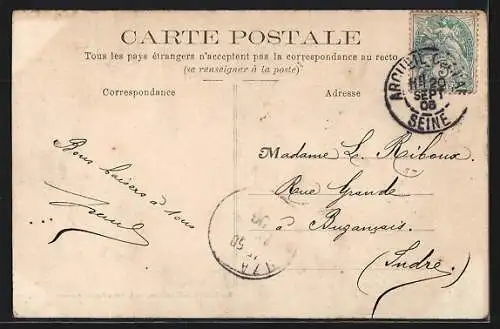 CARTE POSTALE
Tous les pays étrangers n'acceptent pas la correspondance au recto
(se renseigner à la poste)
Correspondance
Adresse
ARCUEIL
SEPT
08
SEINE
Bons baisers à tous
Madame L. Riboux
Rue Grande
à Buzançais.
(Indre)